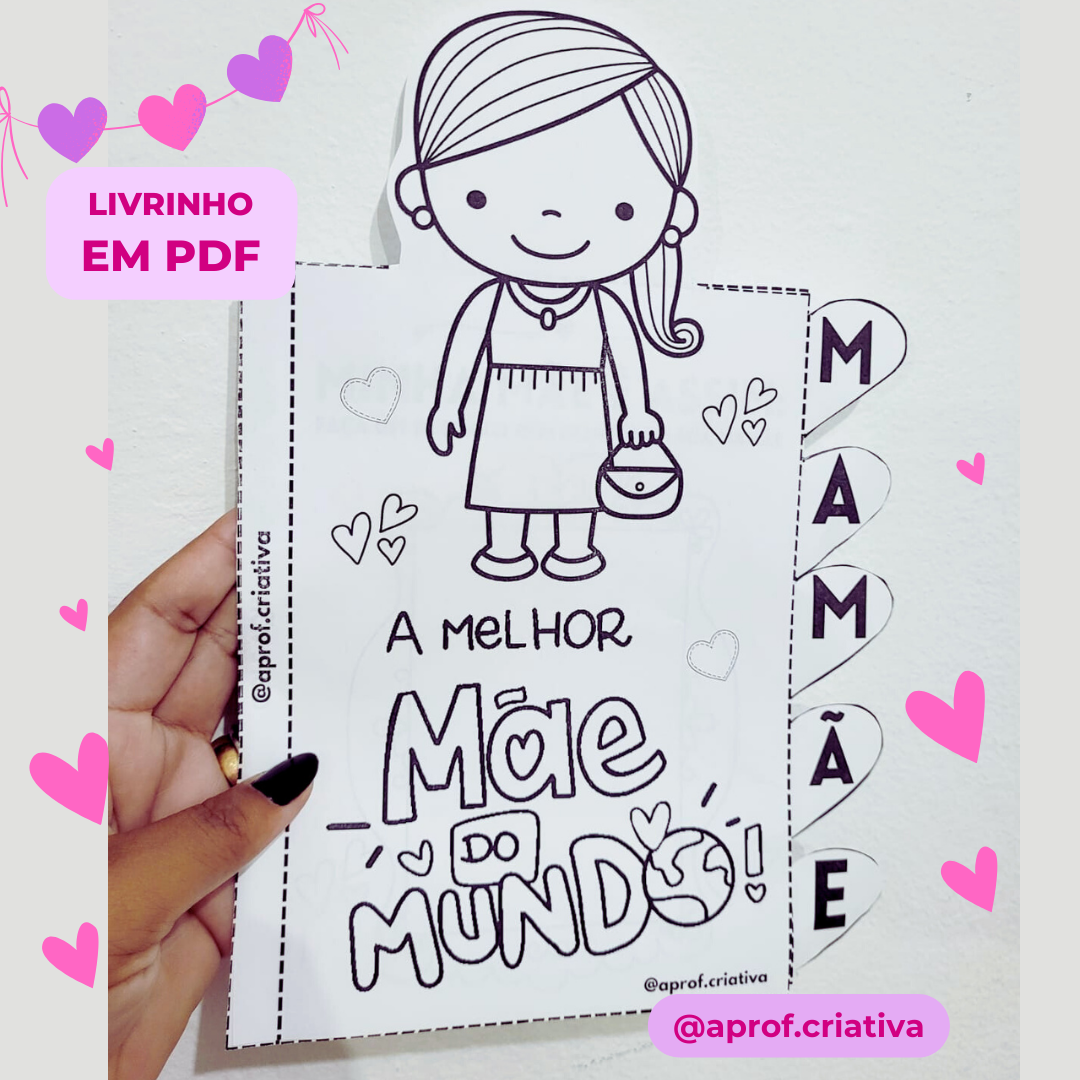 LIVRINHO
EM PDF
M
A
M
Ã
E
@aprof.criativa
A MeLHOR
Mãe
DO
MUNDO!
@aprof.criativa
@aprof.criativa